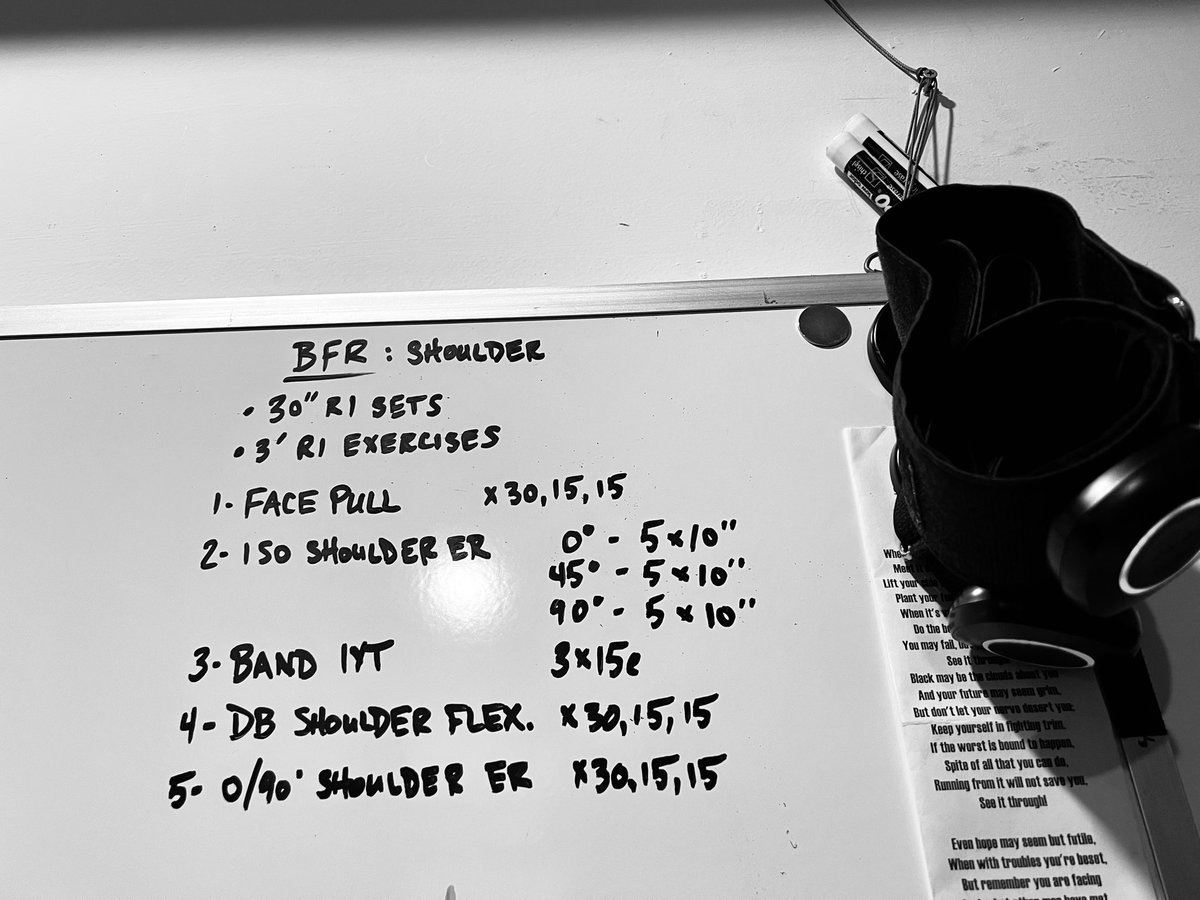 EXPO
BFR : SHOULDER
• 30" RI SETS
• 3' RI EXERCISES
1- FACE PULL x 30, 15, 15
2- ISO SHOULDER ER 0° - 5 x 10"
45° - 5 x 10"
90° - 5 x 10"
3- BAND IYT 3 x 15e
4- DB SHOULDER FLEX. x 30, 15, 15
5- 0/90° SHOULDER ER x 30, 15, 15
Lift your
Plant your
When it's
Do the
You may fall,
See it through
Black may be the clouds about you
And your future may seem grim,
But don't let your nerve desert you;
Keep yourself in fighting trim.
If the worst is bound to happen,
Spite of all that you can do,
Running from it will not save you,
See it through!
Even hope may seem but futile,
When with troubles you're beset,
But remember you are facing